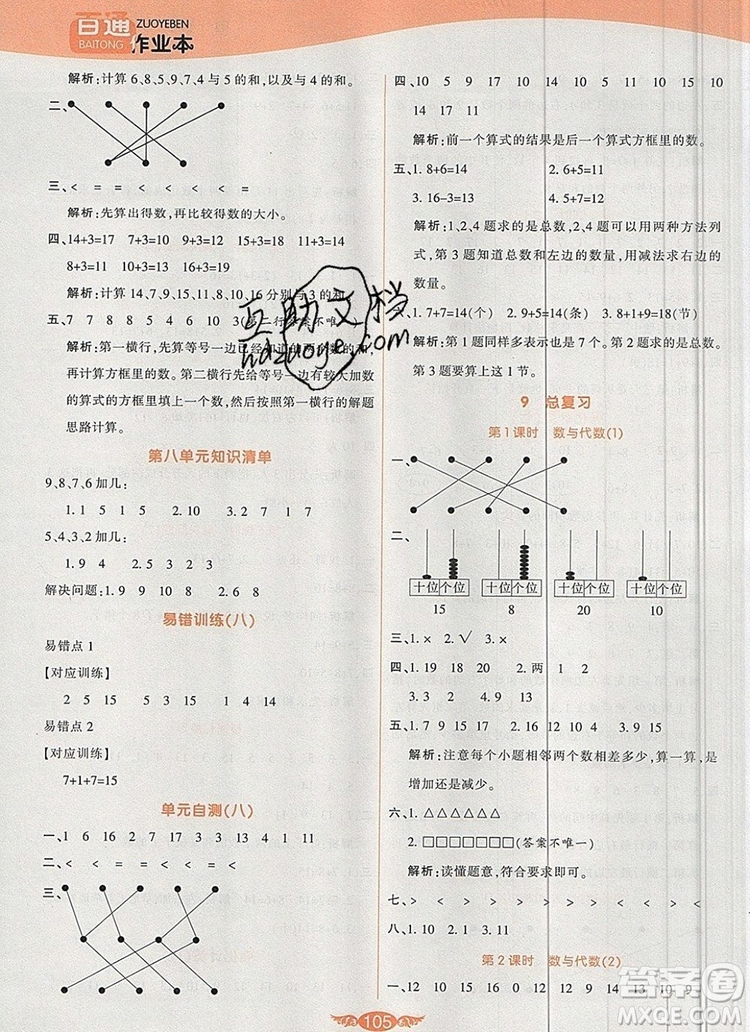 百通
BAITONG
ZUOYEBEN
作业本
解析:计算 6、8、5、9、7、4 与 5 的和,以及与 4 的和。
二、
三、< = < = = <
解析:先算出得数,再比较得数的大小。
四、14+3=17 7+3=10 9+3=12
8+3=11 10+3=13 16+3=19
解析:计算 14、7、9、8、10、16 分别与 3 的和。
五、7 7 8 8 5 4 10 6 3(第二行答案不唯一)
解析:第一横行,先算等号一边已经知道的两个数的和,
再计算方框里的数。第二横行先给等号一边有较大加数
的算式的方框里填上一个数,然后按照第一横行的解题
思路计算。
第八单元知识清单
9、8、7、6 加几:
1. 1 5 1 5 2. 10 3. 2 7 1 7
5、4、3、2 加几:
1. 9 4 2. 5 1 3 2 3
解决问题:1. 9 9 10 8 2. 6 8
易错训练(八)
易错点 1
【对应训练】
2 5 15 5 3 15 1 4 14
易错点 2
【对应训练】
7+1+7=15
单元自测(八)
一、1 6 16 2 7 17 3 13 4 1 11
二、< < = < < < = <
三、
四、10 5 9 17 10 14 9 15 10 10
14 17 11
解析:前一个算式的结果是后一个算式方框里的数。
五、1. 8+6=14 2. 6+5=11
3. 16-3=13 4. 5+7=12
解析:第 1、2、4 题求的是总数,可以用两种方法列
式,第 3 题知道总数和左边的数量,用减法求右边的
数量。
六、1. 7+7=14(个) 2. 9+5=14(条) 3. 8+1+9=18(节)
解析:第 1 题同样多表示也是 7 个。第 2 题求的是总数。
第 3 题要算上这 1 节。
9 总复习
第 1 课时 数与代数(1)
一、
二、
十位 个位 十位 个位 十位 个位 十位 个位
15 8 20 10
三、1. × 2. √ 3. ×
四、1. 19 18 20 2. 两 1 2
3. 3 2 4. 9 13
五、1. 7 9 15 17 2. 10 6 4 3. 9 15
解析:注意每个小题相邻两个数各是多少,算一算,是
增加还是减少。
六、1. △△△△△△
2. □□□□□□□(答案不唯一)
解析:读懂题意,符合要求即可。
七、> < > < > > < > < < > <
八、1. 10 2. 11 3. 19 4. 10
第 2 课时 数与代数(2)
一、11 15 9 0 10 14 12 13 10 9
互助文档
hdzuoye.com
答案圈
MXQE.COM
105